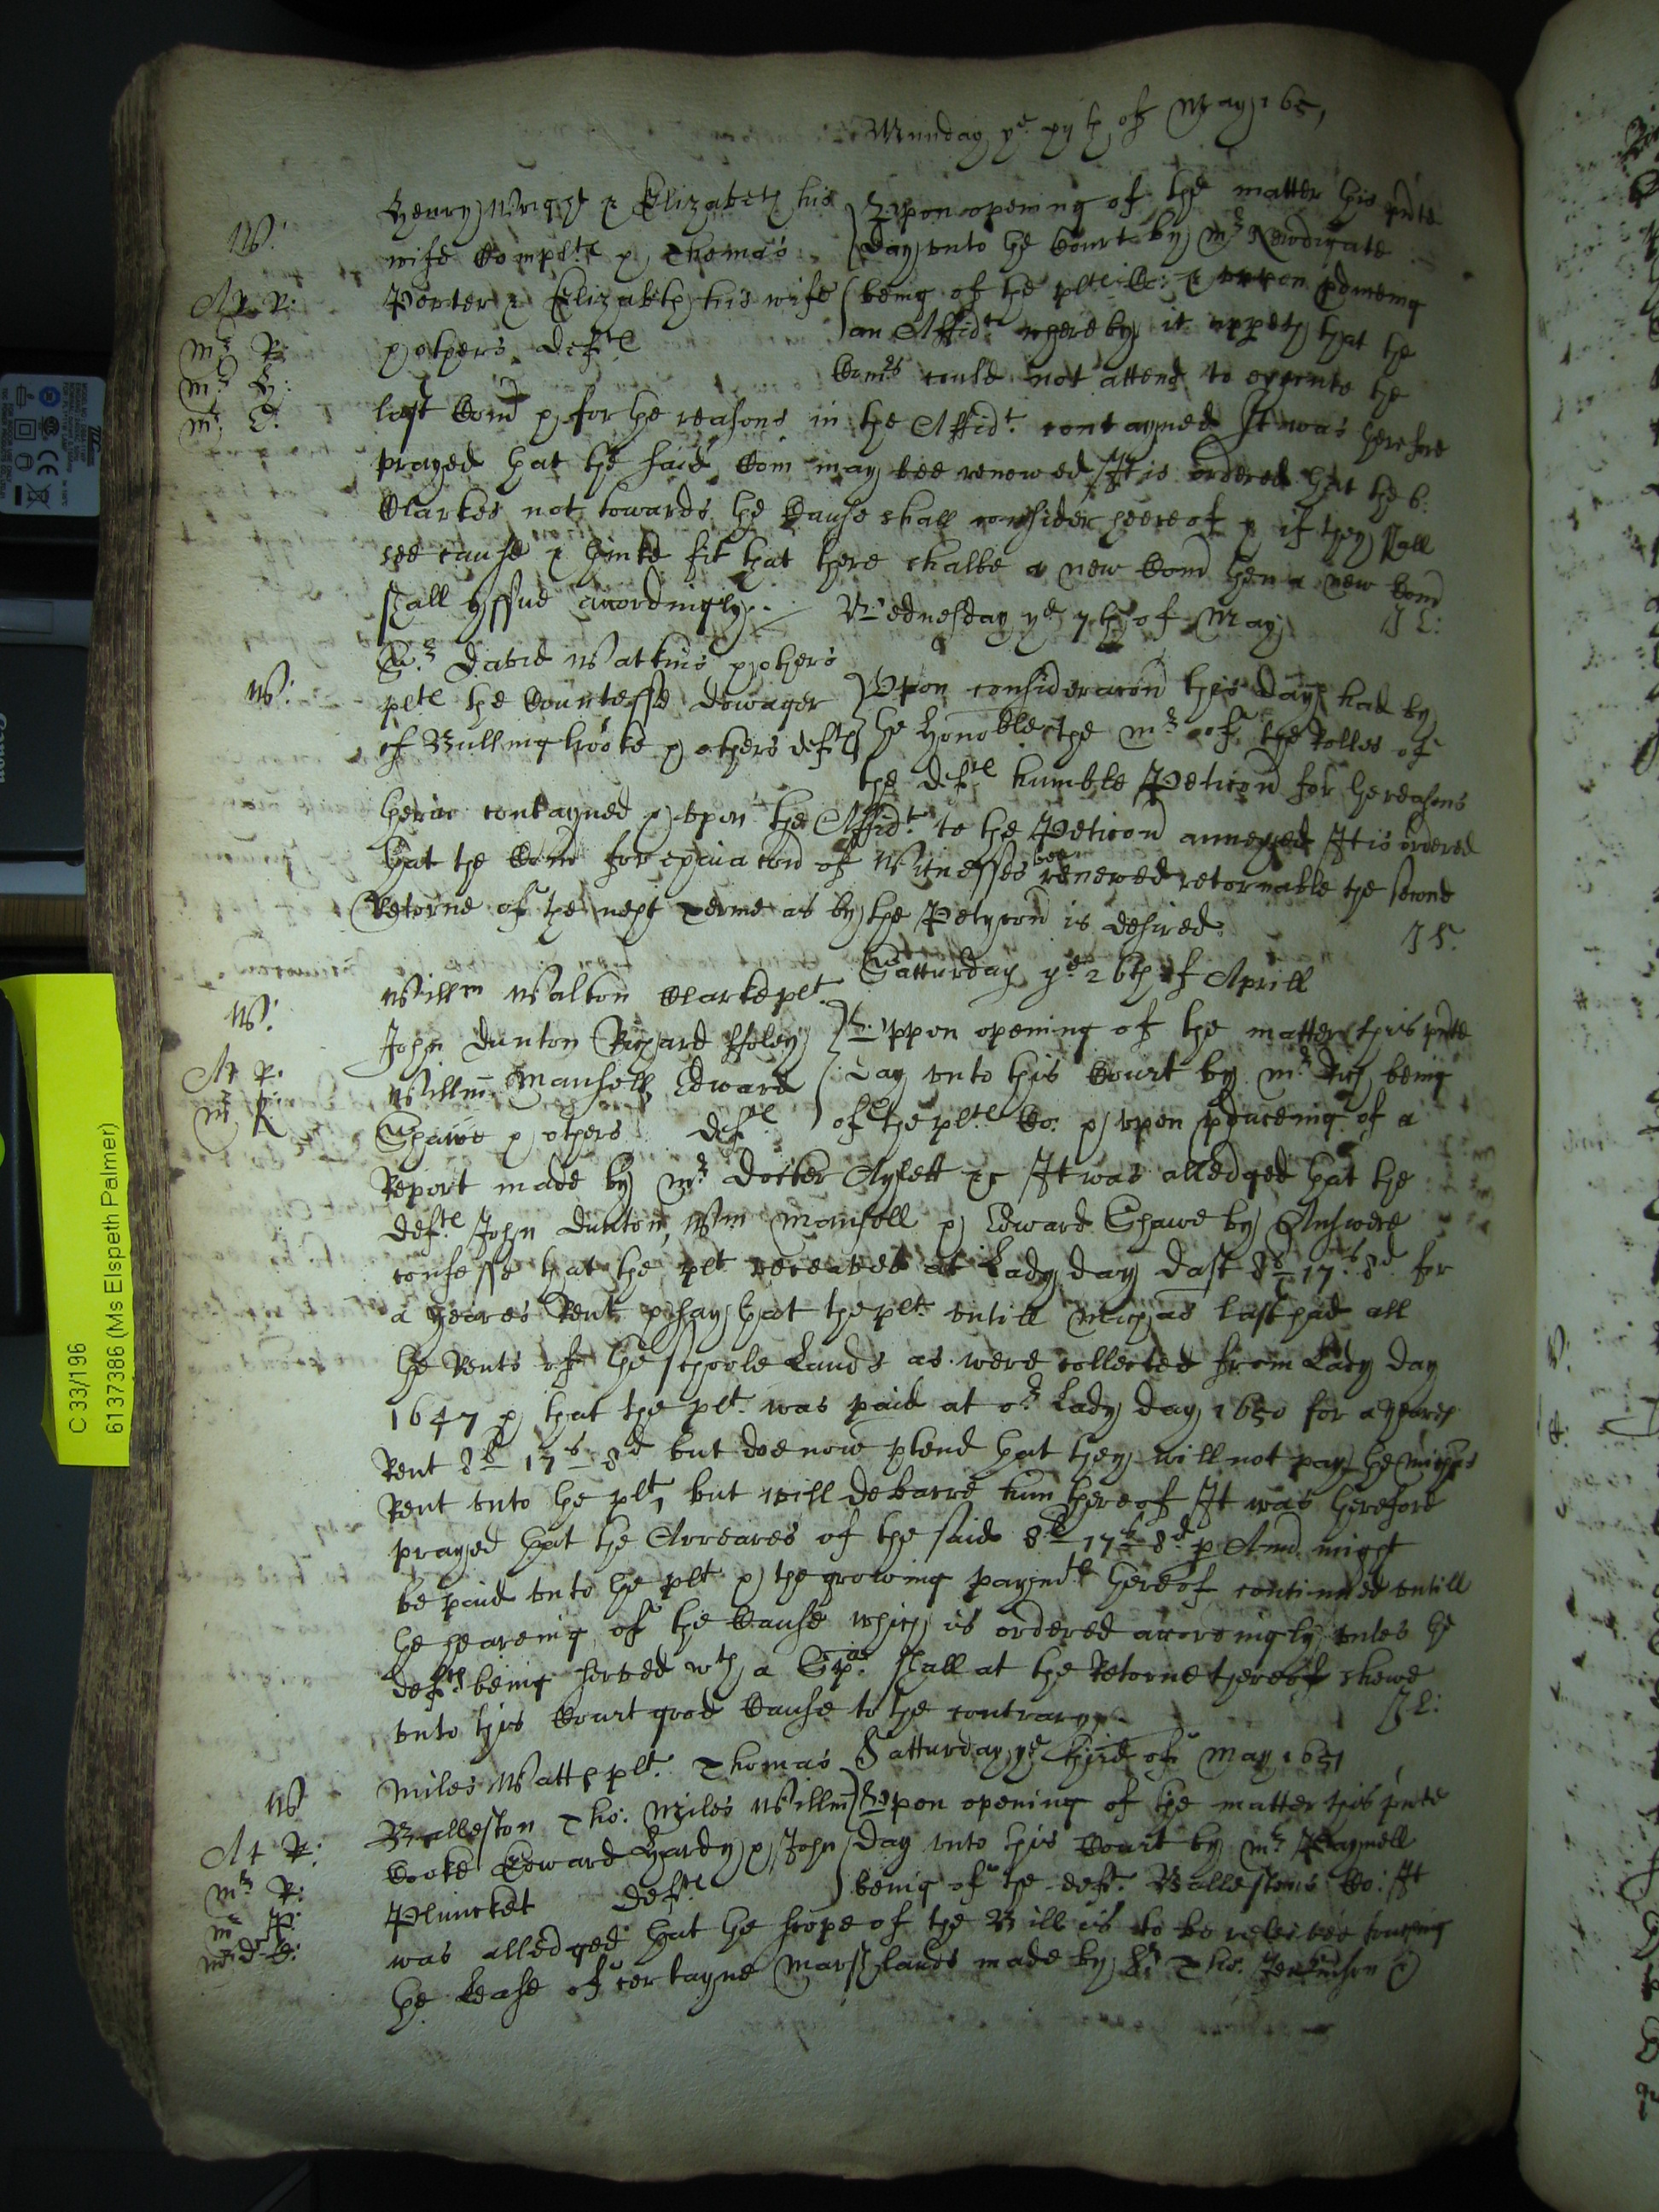 Munday ye xijth of May 165j
W:
Henry Wright & Elizabeth his
wife Complts & Thomas
Porter & Elizabeth his wife
& others defts
Ar R:
Mr R:
Mr H:
Mr E:
Vpon opening of the matter this pnte
day vnto the Court by Mr Newdigate
being of the plts Co: & vpon pduceing
an Affidt whereby it appeth that the
Comrs could not attend to execute the
last Comn & for the reasons in the Affidt contayned It was therefore
prayed that the said Comn may bee renewed It is ordered that the 6:
Clarkes not towards the Cause shall consider heereof & if they shall
see cause & thinke fit that there shalbe a new Comn then a new Comn
shall yssue accordingly
J L:
Wednesday ye 7th of May
W:
Sr David Watkins & others
plts the Countesse dowager
of Bullingbrooke & others defts
Vpon consideracon this day had by
the Honoble the Mr of the Rolles of
the defts humble Peticon for the reasons
therin contayned & vpon the Affidt to the Peticon annexed It is ordered
that the Comn for exaiacon of Witnesses bee renewed retornable the second
Retorne of the next Terme as by the Petycon is desired
J L:
Satturday ye 26th of Aprill
W:
Willm Walton Clarke plt
John Dunton Richard ffoley
Willm Mansell Edward
Shawe & others defts
Ar R:
Mr K
Vppon opening of the matter this pnte
day vnto this Court by Mr Rich being
of the plts Co: & vpon pduceing of a
Report made by Mr Doctor Aylett &c It was alledged that the
defts John Dunton, Wm Mansell & Edward Shawe by Answere
confesse that the plt received at Lady day last 8li 17s 8d for
a yeares Rent & say that the plt vntill Michas last had all
the Rents of the schoole Lands as were collected from Lady day
1647 & that the plt was paid at or Lady day 1650 for a yeares
Rent 8li 17s 8d but doe now ptend that they will not pay the Michas
Rent vnto the plt, but will debarre him thereof It was therefore
prayed that the Arreares of the said 8li 17s 8d p Ann might
be paid vnto the plt & the growing paymts thereof continued vntill
the heareing of the Cause which is ordered accordingly vnles the
defts being served wth a Spa shall at the Retorne thereof shewe
vnto this Court good Cause to the contrary
J L:
Satturday ye third of May 1651
W
Miles Watts plt Thomas
Balleston Tho: Miles Willm
Cooke Edward Hardy & John
Pluncket defts
Ar R:
Mr R:
Mr P:
Vpon opening of the matter this pnte
day vnto this Court by Mr Paynell
being of the deft Ballestons Co: It
was alledged that the scope of the Bill is to be releived touching
the Lease of certayne Marsh lands made by Sr Tho: Jenkinson &
C 33/196
6137386 (Ms Elspeth Palmer)
Canon